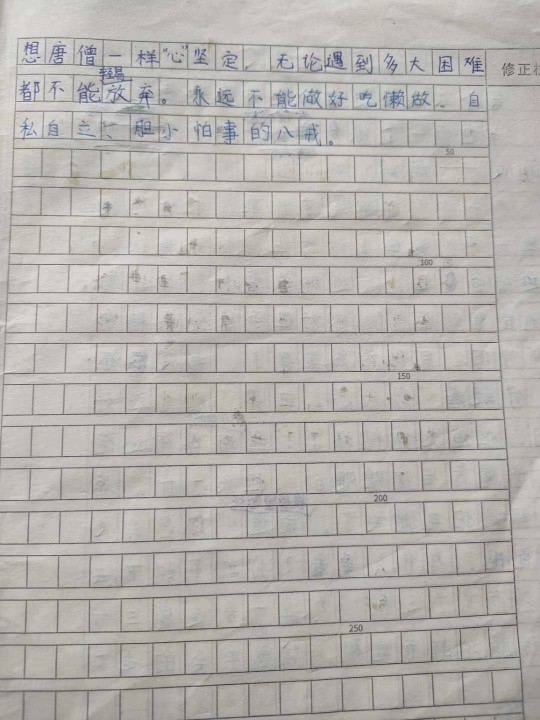 想唐僧一样“心”坚定，无论遇到多大困难
修正栏
轻易
都不能放弃。永远不能做好吃懒做、自
私自立、胆小怕事的八戒。
50
100
150
200
250